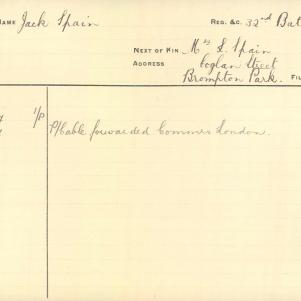 NAME Jack Spain REG. &C. 32nd Bat
NEXT OF KIN Mrs S. Spain
ADDRESS Coglan Street
Brompton Park. FI
1/P P/Cable forwarded Commrs London.